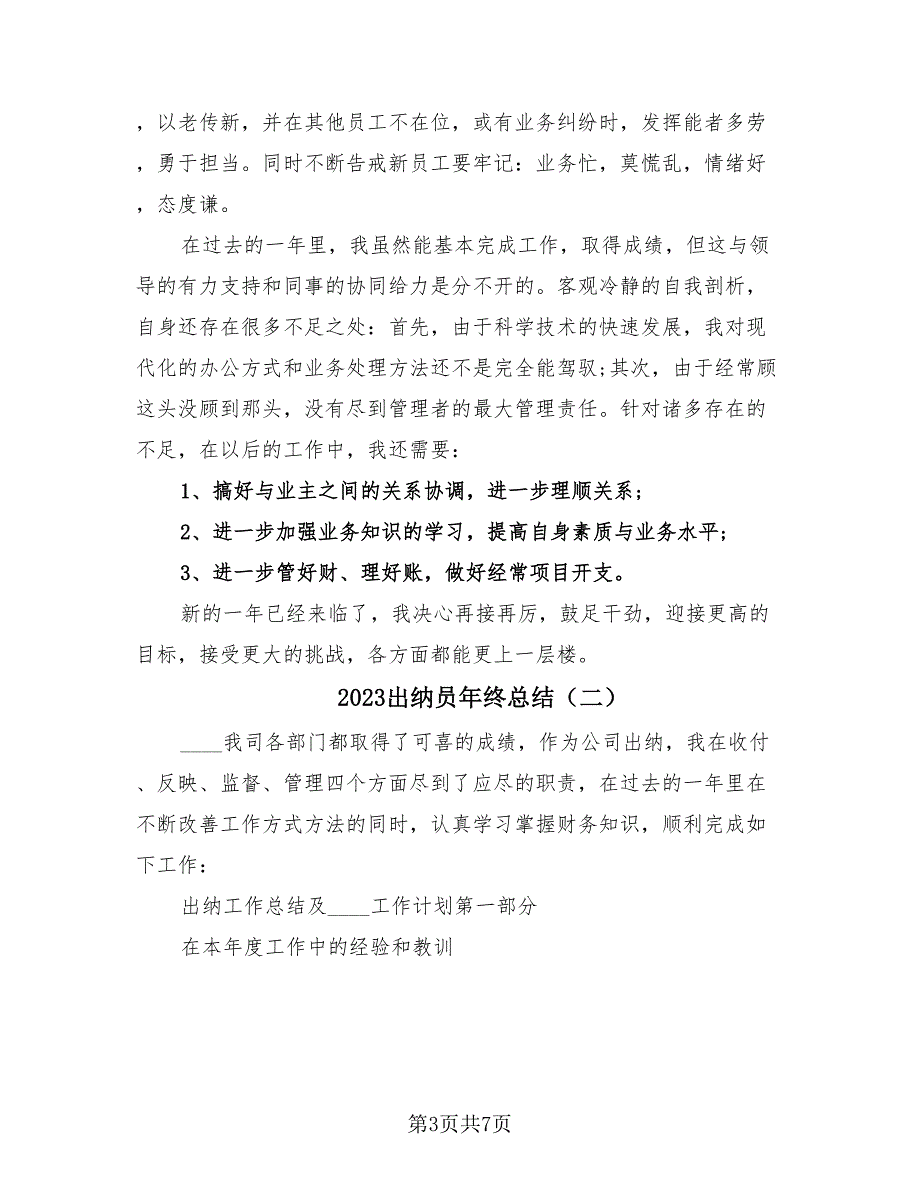 ，以老传新，并在其他员工不在位，或有业务纠纷时，发挥能者多劳
，勇于担当。同时不断告戒新员工要牢记：业务忙，莫慌乱，情绪好
，态度谦。
在过去的一年里，我虽然能基本完成工作，取得成绩，但这与领
导的有力支持和同事的协同给力是分不开的。客观冷静的自我剖析，
自身还存在很多不足之处：首先，由于科学技术的快速发展，我对现
代化的办公方式和业务处理方法还不是完全能驾驭;其次，由于经常顾
这头没顾到那头，没有尽到管理者的最大管理责任。针对诸多存在的
不足，在以后的工作中，我还需要：
1、搞好与业主之间的关系协调，进一步理顺关系;
2、进一步加强业务知识的学习，提高自身素质与业务水平;
3、进一步管好财、理好账，做好经常项目开支。
新的一年已经来临了，我决心再接再厉，鼓足干劲，迎接更高的
目标，接受更大的挑战，各方面都能更上一层楼。
2023出纳员年终总结（二）
____我司各部门都取得了可喜的成绩，作为公司出纳，我在收付
、反映、监督、管理四个方面尽到了应尽的职责，在过去的一年里在
不断改善工作方式方法的同时，认真学习掌握财务知识，顺利完成如
下工作：
出纳工作总结及____工作计划第一部分
在本年度工作中的经验和教训
第3页共7页